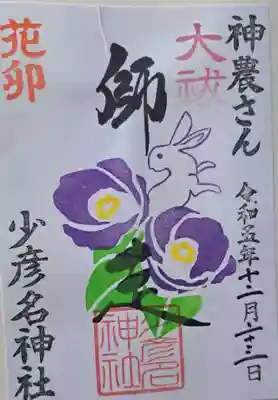 神農さん
令和五年十二月二十三日
大祓
師走
花卯
少彦名神社
少彦名神社